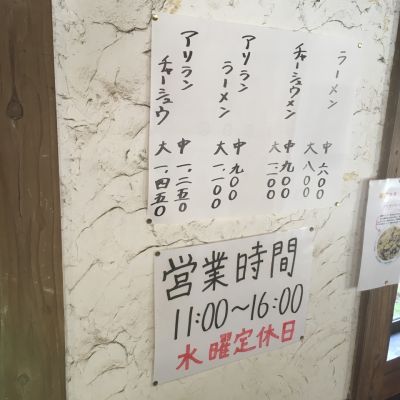 ラーメン
中 六〇〇
大 八〇〇
チャーシュウメン
中 九〇〇
大 一、一〇〇
アリランラーメン
中 九〇〇
大 一、一〇〇
アリランチャーシュウ
中 一、二五〇
大 一、四五〇
営業時間
11:00～16:00
水曜定休日